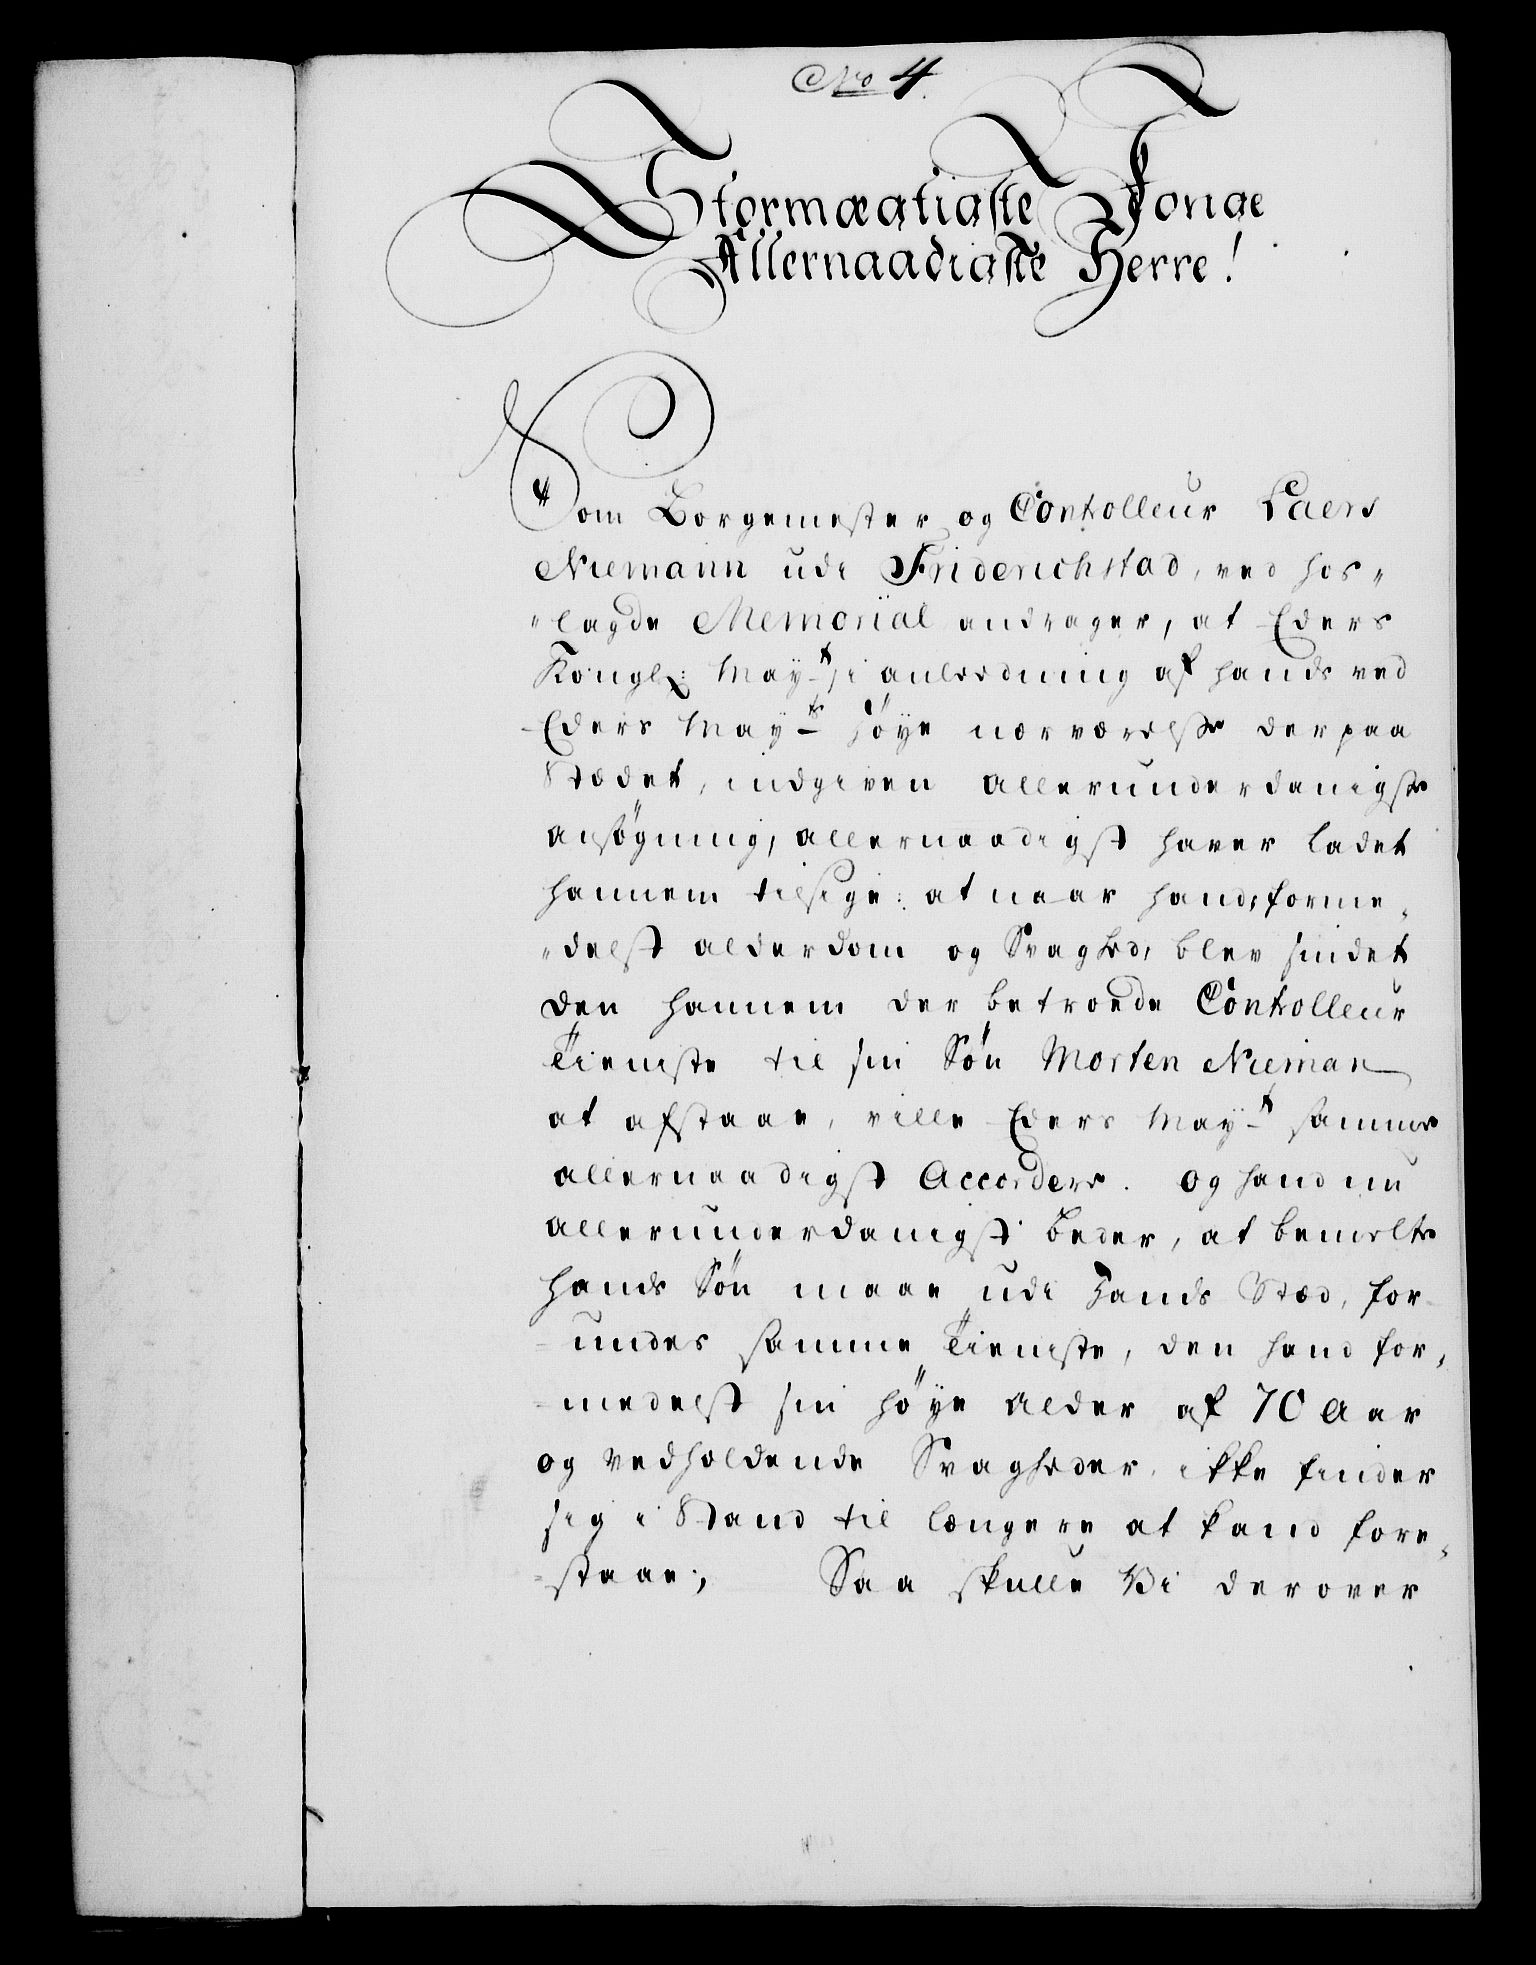 No 4.
Stormægtigste Konge
Allernaadigste Herre!
Som Borgemester og Controlleur Laers
Niemann udi Friderichstad, ved hos-
-lagde Memorial andrager, at Eders
Kongl: Mayt. i anleedning af hands ved
Eders Mayts høye nærværelsse der paa
Stædet, indgiven allerunderdanigste
ansøgning, allernaadigst haver ladet
hannem tilsige: at naar hand, forme-
-delst alderdom og Svaghed, blev sindet
den hannem der betroede Controlleur
Tieniste til sin Søn Morten Nieman
at afstaae, ville Eders Mayt samme
allernaadigst Accordere. Og hand nu
allerunderdanigst beder, at bemelte
hands Søn maae udi hands Stæd, for-
-undes samme Tieniste, den hand for-
-medelst sin høye alder af 70 Aar
og vedholdende Svagheder, ikke finder
sig i Stand til længere at kand fore-
-staae; Saa skulle Vi derover